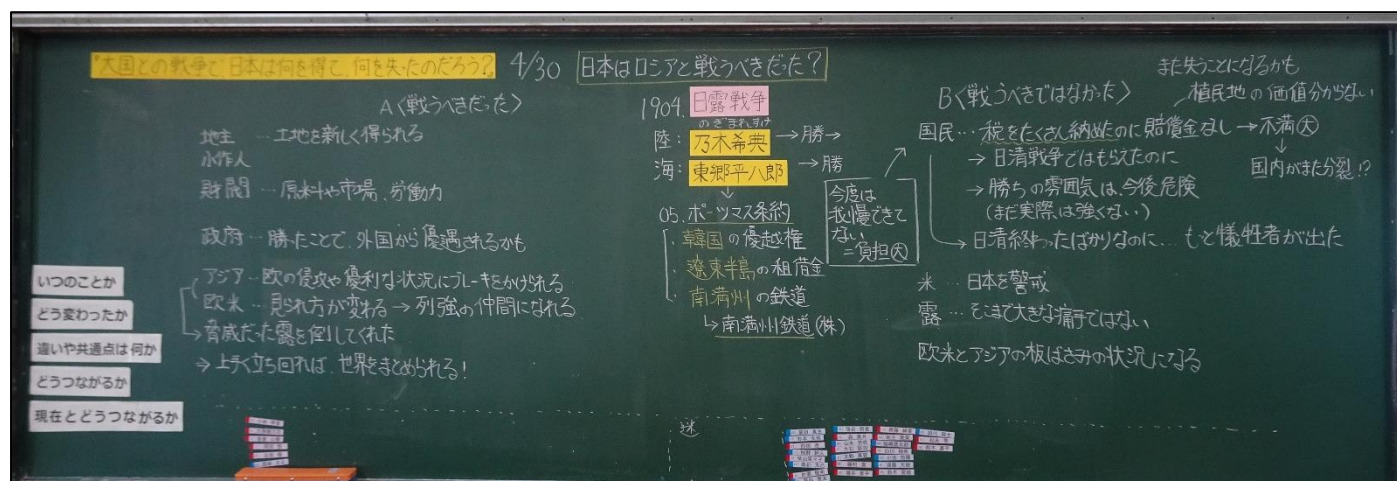 大国との戦争で、日本は何を得て、何を失ったのだろう?
4/30
日本はロシアと戦うべきだった?
A〈戦うべきだった〉
地主 … 土地を新しく得られる
小作人
財閥 … 原料や市場、労働力
政府…勝ったことで、外国から優遇されるかも
アジア…欧の侵攻や優利な状況にブレーキをかけられる
欧米…見られ方が変わる→列強の仲間になれる
→脅威だった露を倒してくれた
→上手く立ち回れば、世界をまとめられる!
いつのことか
どう変わったか
違いや共通点は何か
どうつながるか
現在とどうつながるか
1904. 日露戦争
のぎまれすけ
陸:乃木希典→勝→
海:東郷平八郎→勝
↓
05. ポーツマス条約
・韓国の優越権
・遼東半島の租借金
・南満州の鉄道
↳南満州鉄道(株)
今度は
我慢できて
ない
=負担大
B〈戦うべきではなかった〉
また失うことになるかも
植民地の価値分からない
国民…税をたくさん納めたのに賠償金なし→不満大
↓
国内がまた分裂!?
→日清戦争ではもらえたのに
→勝ちの雰囲気は、今後危険
(まだ実際は強くない)
→日清終わったばかりなのに… もっと犠牲者が出た
米 … 日本を警戒
露 … そこまで大きな痛手ではない
欧米とアジアの板ばさみの状況になる
迷